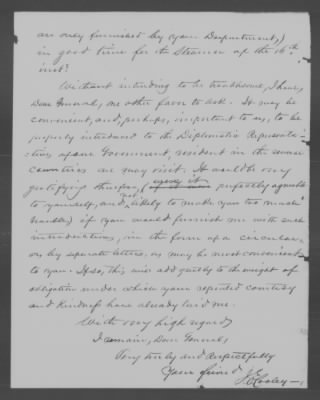 are only furnished by your Department,)
in good time for the Steamer of the 16th
inst?
Without intending to be troublesome, I have,
Dear General, one other favor to ask. It may be
convenient, and, perhaps, important to us, to be
properly introduced to the Diplomatic Representa-
tives of our Government, resident in the several
countries we may visit. It would be very
gratifying therefore, (were it perfectly agreeable
to yourself, and not likely to make you too much
trouble) if you would furnish me with such
introductions, in the form of a circular,
or by separate letters, as may be most convenient
to you. Also, this will add greatly to the weight of
obligation under which your repeated courtesy
and kindness have already laid me.
With very high regard,
I remain, Dear General,
Very truly and Respectfully
Your friend